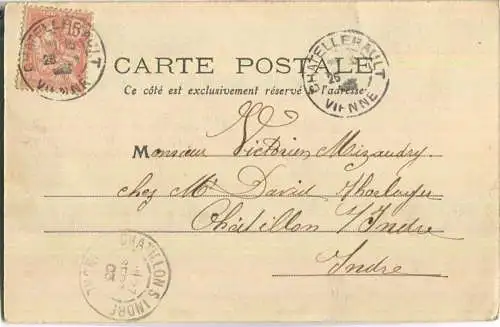 15
CHATELLERAULT
26
VIENNE
CHATELLERAULT
26
VIENNE
CARTE POSTALE
Ce côté est exclusivement réservé à l'adresse
Monsieur Victorien Mizaudry
chez Mr David Horloger
Châtillon s/ Indre
Indre
CHATILLON S INDRE